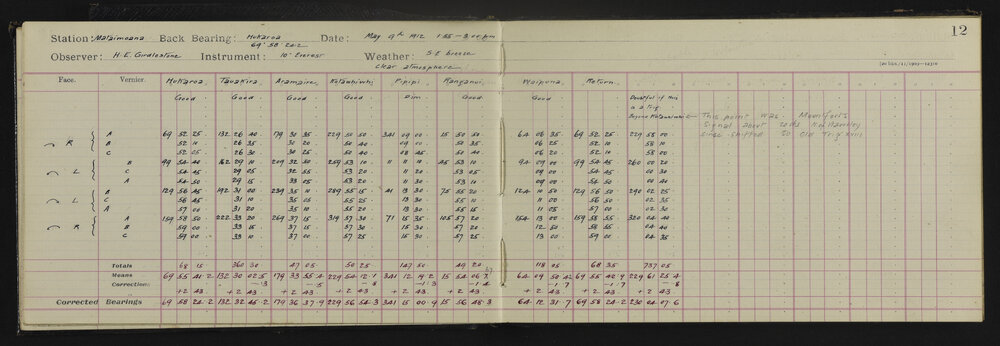 12
Station: Mataimoana Back Bearing: Hokaroa Date: May 9th 1912 1.55 – 3.04 p.m
69° 58' 24.2
Observer: H. E. Girdlestone Instrument: 10" Everest Weather: S.E breeze
clear atmosphere
Face. Vernier. Hokaroa Taoakira Aramaire Kotaohiwhi Pipipi Ranganui Waipuna Return
Good Good Good Good Dim Good Good Doubtful if this
is a Trig
Beyond Kotaohiwhi
This point was Momfort's
Signal about 20lks Ken Hansley
since shifted to Old Trig XVIII
R A 69 52 25 132 26 40 179 30 35 229 50 50 341 09 00 15 50 50 64 06 35 69 52 25 229 58 00
B 52 10 26 35 30 20 50 40 09 00 50 35 06 25 52 10 58 10
C 52 05 26 30 30 25 50 40 08 45 50 40 06 20 52 10 58 00
L B 99 54 40 162 29 10 209 32 50 259 53 10 11 11 10 45 53 10 94 09 00 99 54 45 260 00 20
C 54 45 29 05 32 55 53 20 11 20 53 05 09 00 54 50 00 30
A 54 50 29 15 33 05 53 20 11 30 53 10 09 00 54 45 00 40
L B 129 56 45 192 31 00 239 35 10 289 55 15 41 13 30 75 55 20 124 10 50 129 56 50 290 02 25
C 56 45 31 10 35 05 55 25 13 30 55 11 00 56 50 02 35
A 57 00 31 20 35 10 55 20 13 30 55 15 11 05 57 00 02 30
R A 159 58 50 222 33 20 269 37 15 319 57 30 71 15 35 105 57 20 154 13 00 159 58 55 320 04 40
B 59 00 33 15 37 15 57 30 15 30 57 20 12 50 58 55 04 40
C 59 00 33 10 37 00 57 25 15 30 57 25 13 00 59 00 04 35
Totals 68 15 360 30 47 05 50 25 147 50 49 20 118 05 68 35 737 05
Means 69 55 41.2 132 30 02.5 179 33 55.4 229 54 12.1 341 12 19.2 15 54 06.7 64 09 50.42 69 55 42.9 229 61 25.4
Corrections -.3 -.5 -.8 -1.3 -1.4 -1.7 -1.7 -.8
+2 43 +2 43 +2 43 +2 43 +2 43 +2 43 +2 43 +2 43 +2 43
Corrected Bearings 69 58 24.2 132 32 45.2 179 36 37.9 229 56 54.3 341 15 00.9 15 56 48.3 64 12 31.7 69 58 24.2 230 04 07.6